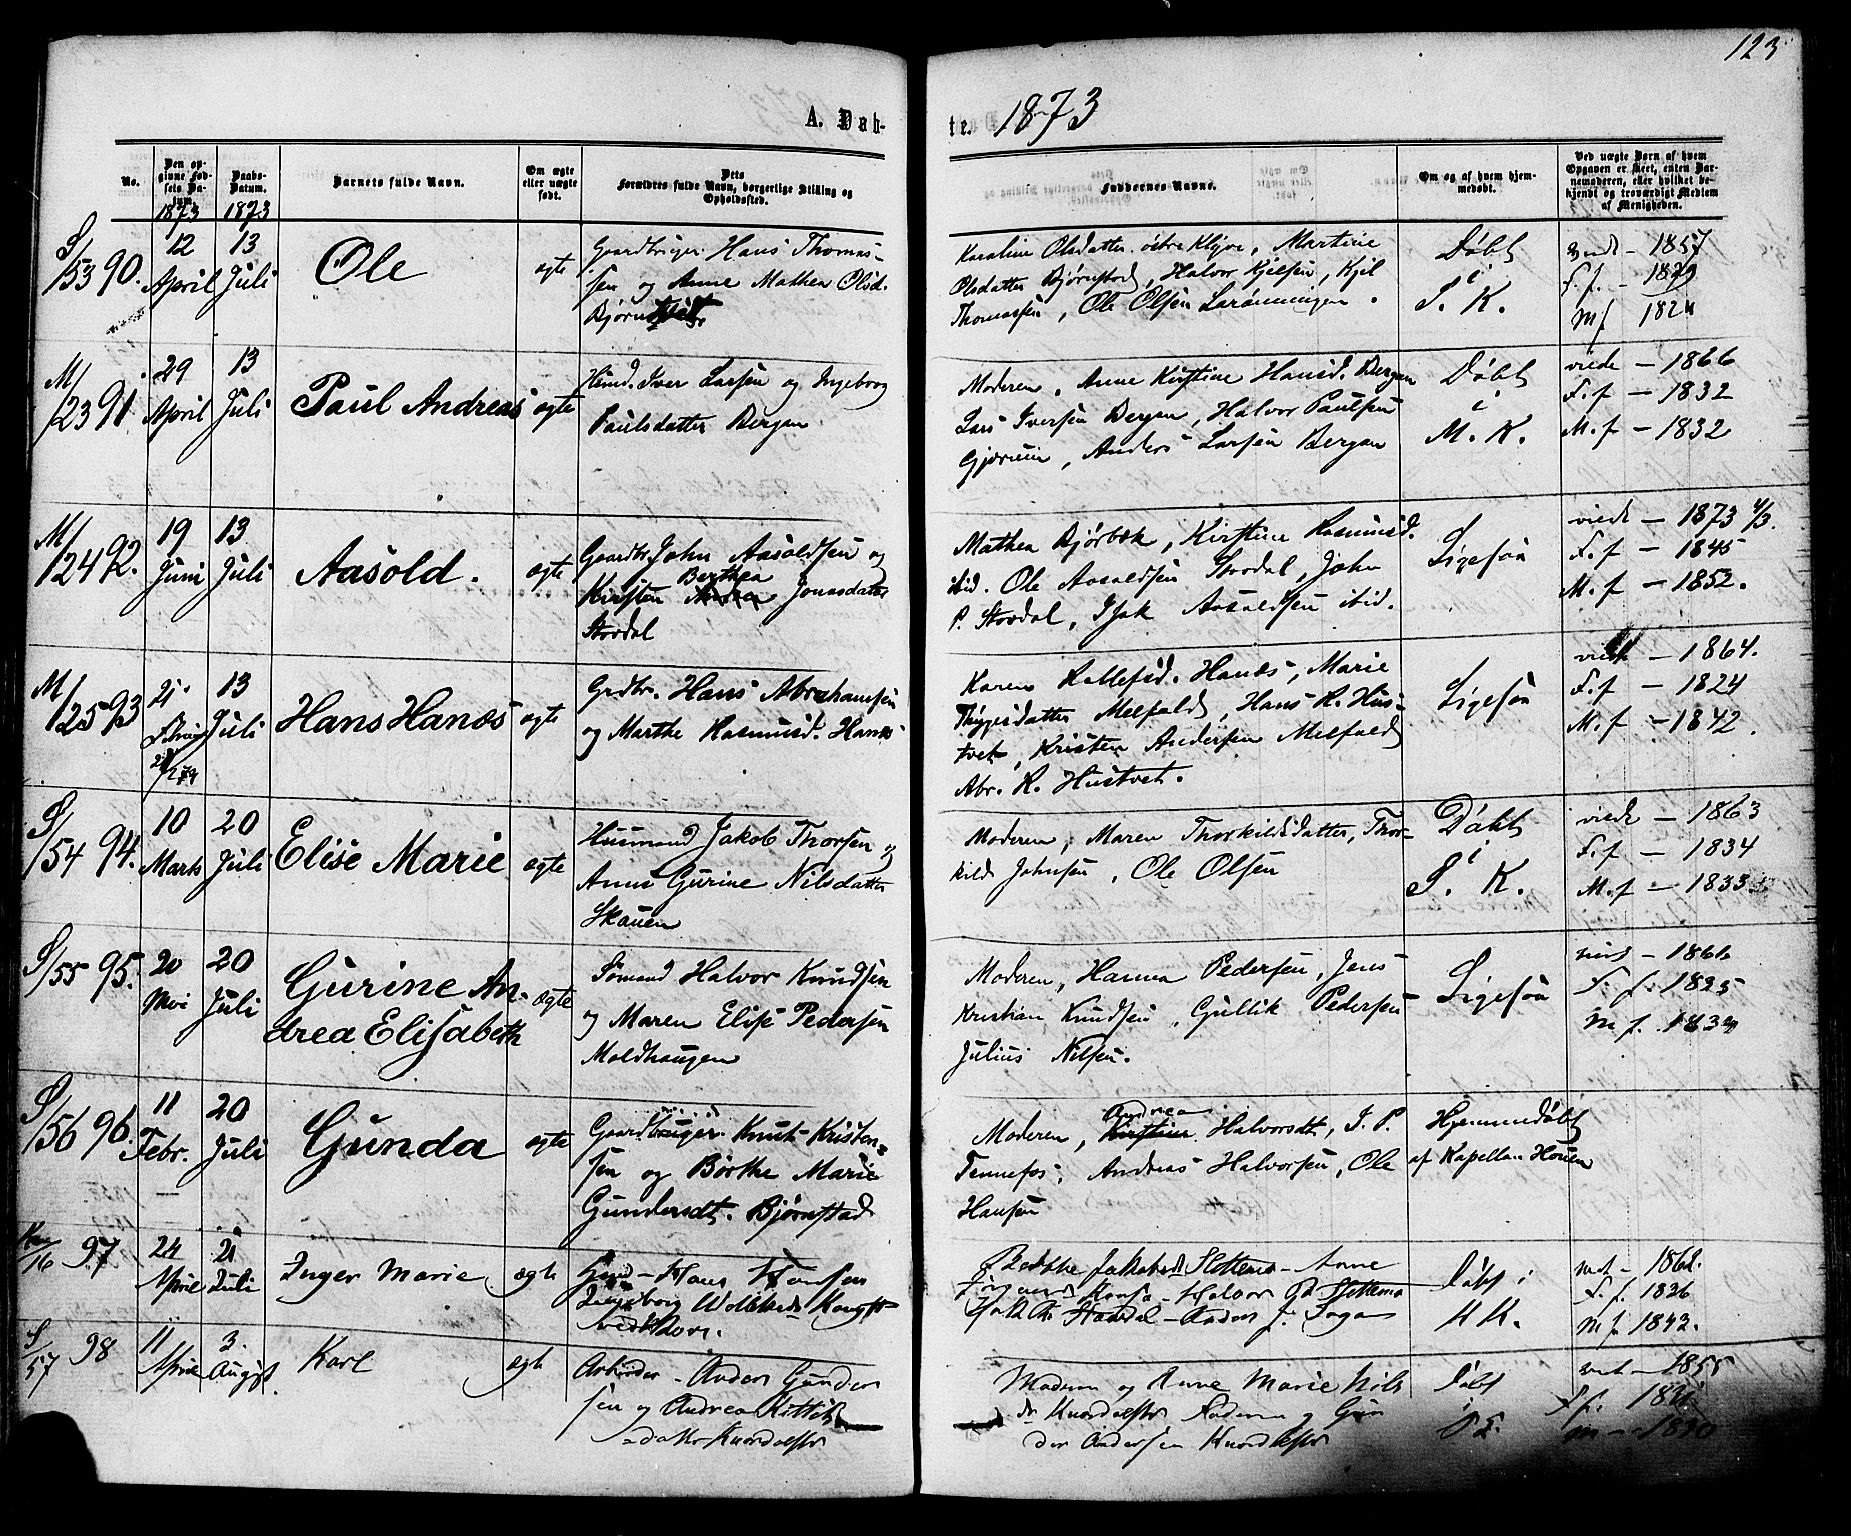 123
A. Døb-
te. 1873
No.
Den op-
givne Fød-
sels Da-
tum.
Daabs-
Datum.
Barnets fulde Navn.
Om ægte
eller uægte
født.
Dets
Forældres fulde Navn, borgerlige Stilling og
Opholdssted.
Faddernes Navne.
Om og af hvem hjem-
medøbt.
Ved uægte Børn af hvem
Opgaven er skeet, enten Bar-
nemoderen, eller hvilket be-
kjendt og troværdigt Medlem
af Menigheden.
1873 1873
S/53 90.
12
April
13
Juli
Ole
ægte
Gaardbruger Hans Thomas-
sen og Anne Mathea Olsd.
Karoline Olsdatter østre Klyve, Martine
Olsdatter Bjørnstad, Halvor Kjelsen, Kjel
Thomassen, Ole Olsen
Døbt
i
S. K.
1857
F. f. 1829
M f 1824
M/23 91
29
April
13
Juli
Paul Andreas
ægte
Husmd. Iver Larsen og Ingeborg
Paulsdatter Bergan
Moderen, Anne Kirstine Hansd. Bergan
Lars Iversen Bergan, Halvor Paulsen
Anders Larsen Bergan
Døbt
i
M. K.
viede — 1866
F. f — 1832
M. f — 1832
M/124 92.
19
Juni
13
Juli
Aasold.
ægte
Gaardbr. John Aasoldsen og
Berthea
Kirsten Jonasdatter
Stordal
Mathea Bjørbæk, Kirstine Rasmusd.
ibid. Ole Aasoldsen Stordal, John
P. Stordal, Isak Aasoldsen ibid.
Ligesaa
viede — 1873 4/3.
F. f — 1845
M. f — 1852.
M/125 93
21
13
Juli
Hans Hanæs
ægte
Grdbr. Hans Abrahamsen
og Marthe Rasmusd. Hanæs
Karen Rollefsd. Hanæs, Marie
Thygesdatter Melfald, Hans R. Hus-
tvet, Kristen Andersen Melfald
Abr. R. Hustvet.
Ligesaa
viede — 1864.
F. f — 1824
M. f — 1842.
S/54 94.
10
Marts
20
Juli
Elise Marie
ægte
Husmand Jakob Thorsen og
Anne Gurine Nilsdatter
Skauen
Moderen, Maren Thorkildsdatter, Thor-
kild Johnsen, Ole Olsen
Døbt
i
S. K.
viede — 1863
F. f — 1834
M. f — 1833
S/55 95.
20
Mai
20
Juli
Gurine An-
drea Elisabeth
ægte
Sømand Halvor Knudsen
og Maren Elise Pedersen
Moldhaugen
Moderen, Hanna Pedersen, Jens
Kristian Knudsen, Gullik Pedersen
Julius Nilsen.
Ligesaa
F. f. 1825
M f. 1834
S/56 96.
11
Febr.
20
Juli
Gunda
ægte
Gaardbruger Knut Kristen-
sen og Børthe Marie
Gundersdt. Bjørnstad
Andrea
Moderen, Kirstine Halvorsdt, I. P.
Tennefos, Andreas Halvorsen, Ole
Hansen
Hjemmedøbt
af Kapellan Houen
16 97
24
April
21
Juli
Inger Marie
ægte
Hans Hansen
Ingeborg
Anne
Døbt i
K K.
1862.
F. f. 1826
M f. 1842.
S/57 98
11
April
3.
August
Karl
ægte
Arbeider — Anders Gunder-
sen og Andrea Kittils-
datter
Moderen og Anne Marie Nils-
dr
der Andersen
Døbt
i
1855
F f.